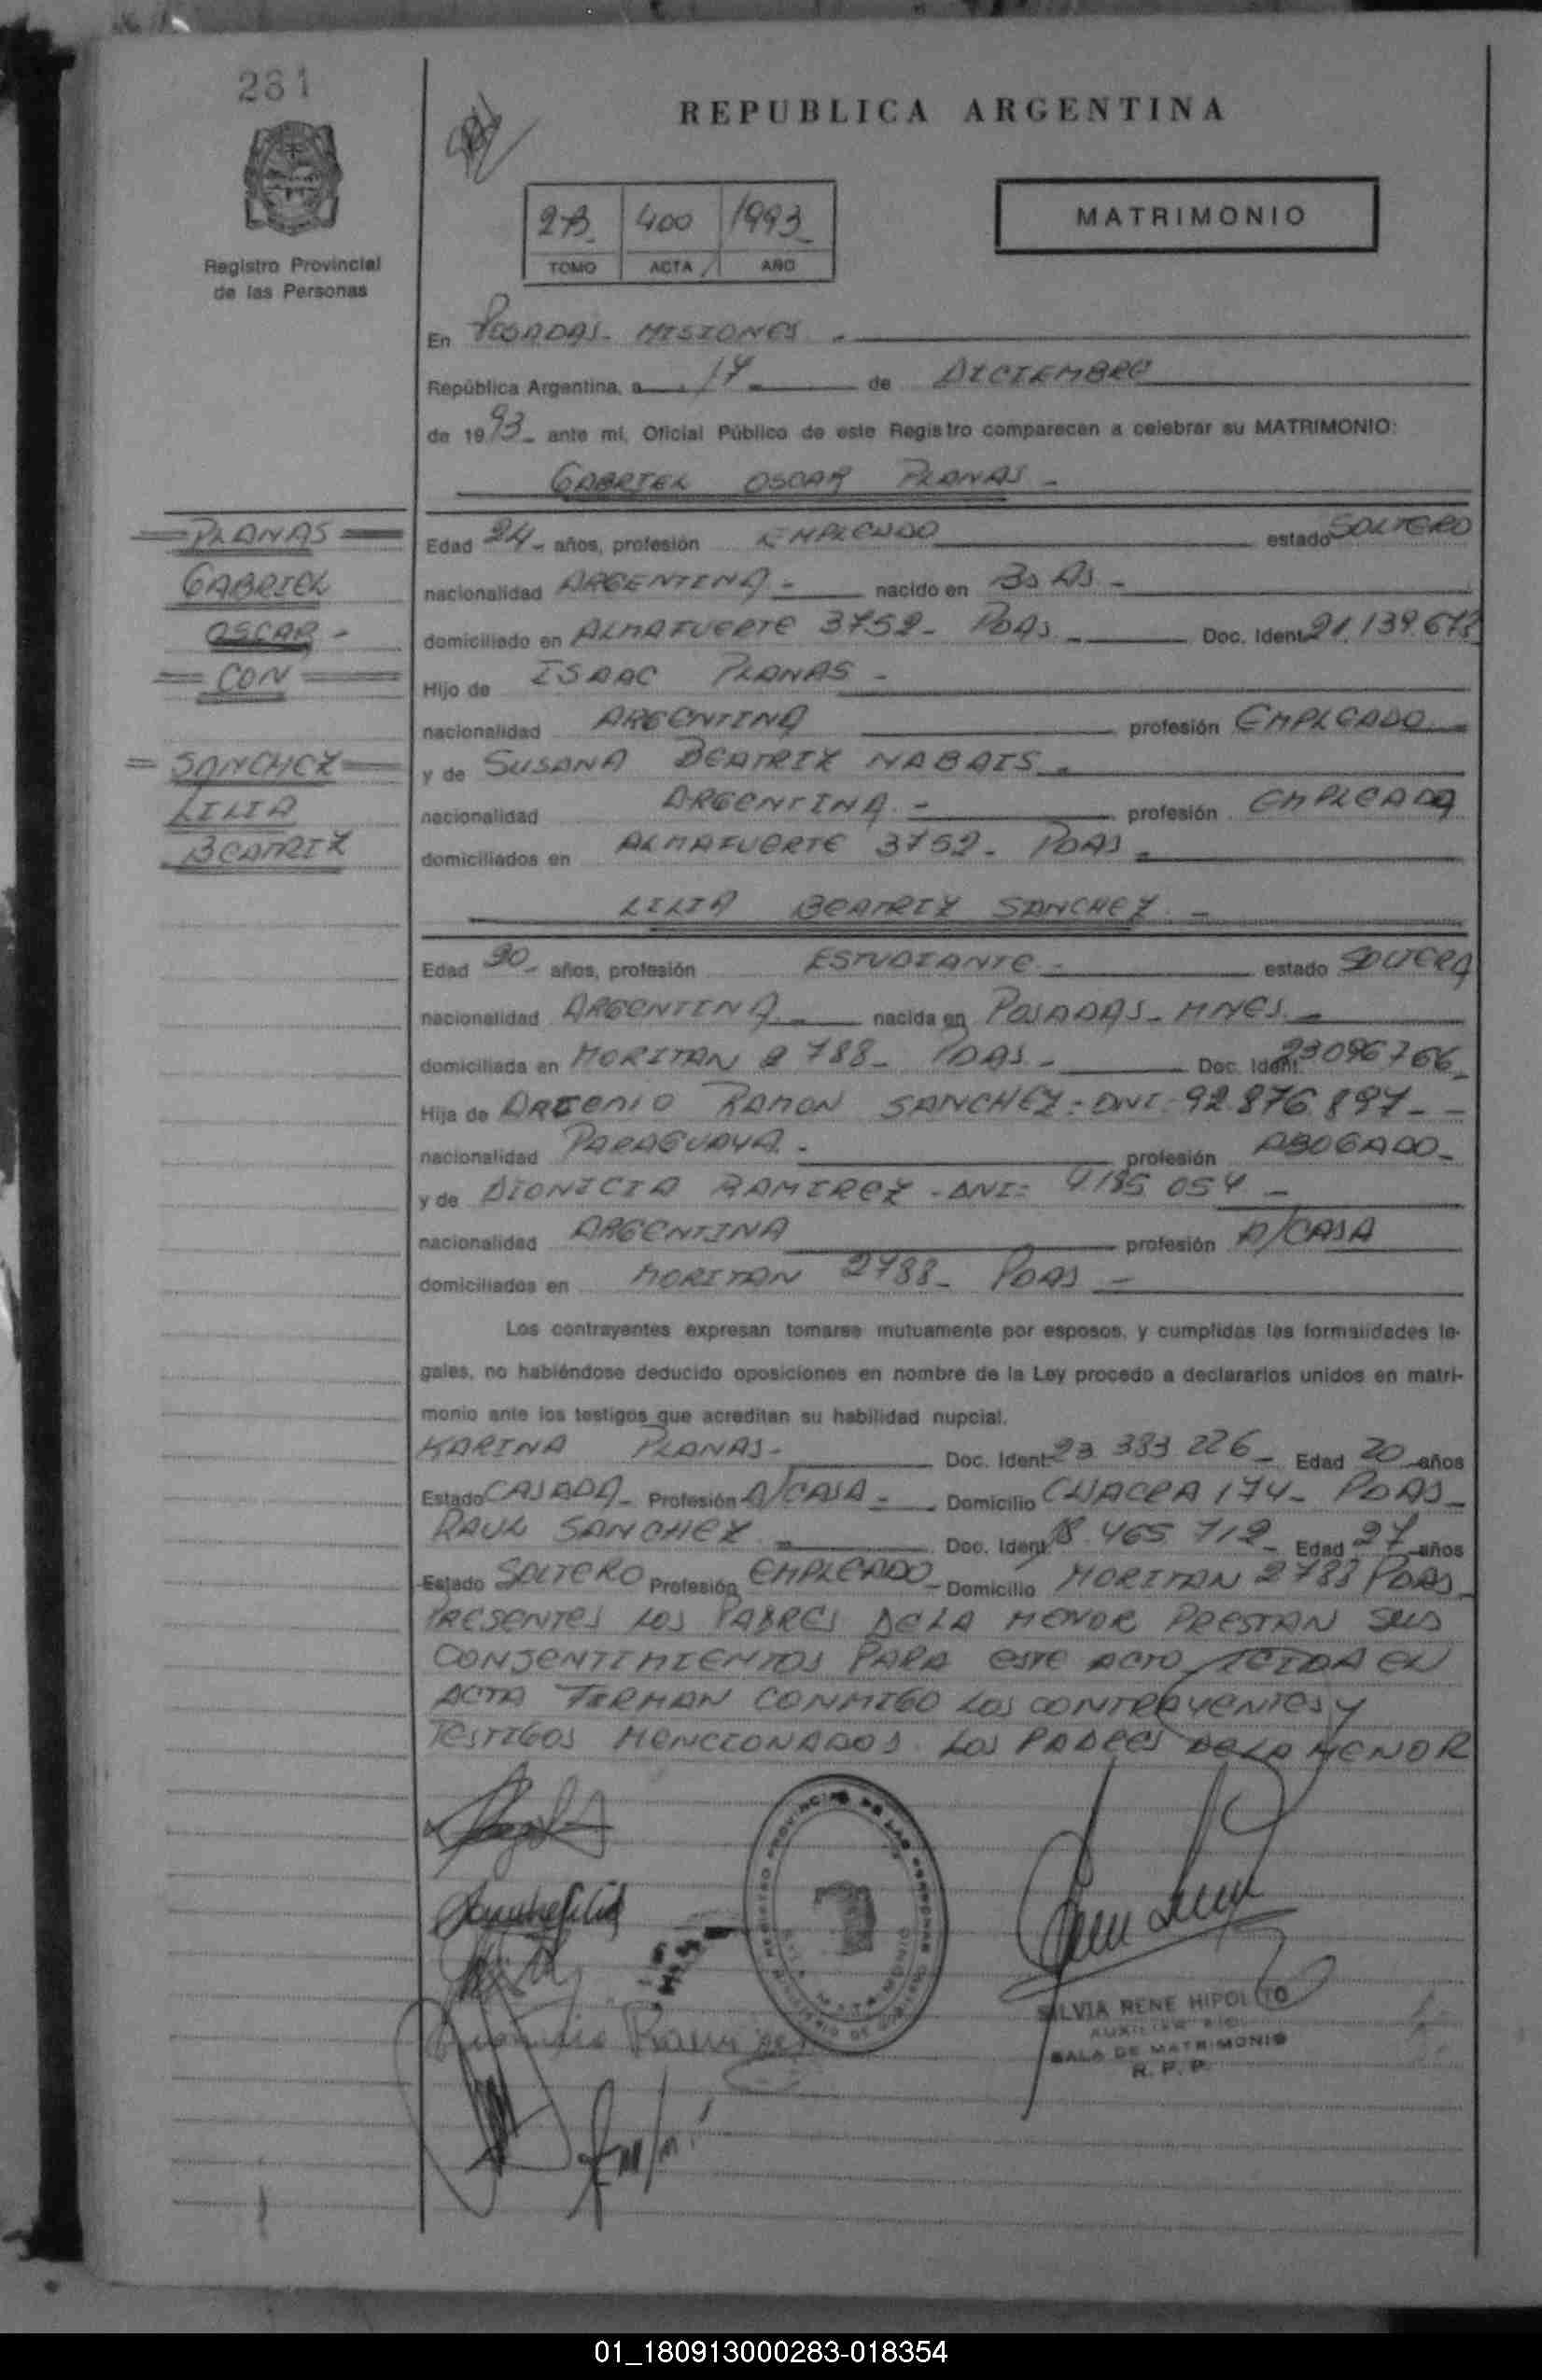 281
REPUBLICA ARGENTINA
2B 400 1993
TOMO ACTA AÑO
MATRIMONIO
Registro Provincial
de las Personas
En POSADAS - MISIONES -
República Argentina, a 17 de DICIEMBRE
de 1993 - ante mí, Oficial Público de este Registro comparecen a celebrar su MATRIMONIO:
GABRIEL OSCAR PLANAS -
PLANAS
GABRIEL
OSCAR -
CON
SANCHEZ
LILIA
BEATRIZ
Edad 24 - años, profesión EMPLEADO estado SOLTERO
nacionalidad ARGENTINA - nacido en Bs As -
domiciliado en ALMAFUERTE 3752 - PDAS - Doc. Ident. 21.139.673
Hijo de ISAAC PLANAS -
nacionalidad ARGENTINA profesión EMPLEADO
y de SUSANA BEATRIZ NABAIS -
nacionalidad ARGENTINA - profesión EMPLEADA
domiciliados en ALMAFUERTE 3752 - PDAS -
LILIA BEATRIZ SANCHEZ -
Edad 20 - años, profesión ESTUDIANTE - estado SOLTERA
nacionalidad ARGENTINA - nacida en POSADAS - MNES -
domiciliada en MORITAN 2788 - PDAS - Doc. Ident. 23096766 -
Hija de ARSENIO RAMON SANCHEZ - DNI - 92.876.897 - -
nacionalidad PARAGUAYA - profesión ABOGADO -
y de DIONICIA RAMIREZ - DNI: 4185 054 -
nacionalidad ARGENTINA profesión A/CASA
domiciliados en MORITAN 2788 - PDAS -
Los contrayentes expresan tomarse mutuamente por esposos, y cumplidas las formalidades le-
gales, no habiéndose deducido oposiciones en nombre de la Ley procedo a declararlos unidos en matri-
monio ante los testigos que acreditan su habilidad nupcial.
KARINA PLANAS - Doc. Ident. 23 383 226 - Edad 20 años
Estado CASADA - Profesión A/CASA - Domicilio CHACRA 174 - PDAS -
RAUL SANCHEZ - Doc. Ident. 18.465 712 - Edad 27 años
Estado SOLTERO Profesión EMPLEADO - Domicilio MORITAN 2788 PDAS -
PRESENTES LOS PADRES DE LA MENOR PRESTAN SUS
CONSENTIMIENTOS PARA ESTE ACTO LEIDA EL
ACTA FIRMAN CONMIGO LOS CONTRAYENTES Y
TESTIGOS MENCIONADOS LOS PADRES DE LA MENOR
REGISTRO PROVINCIAL DE LAS PERSONAS
Ramirez
SILVIA RENE HIPOLITO
SALA DE MATRIMONIO
R. P. P.
01_180913000283-018354